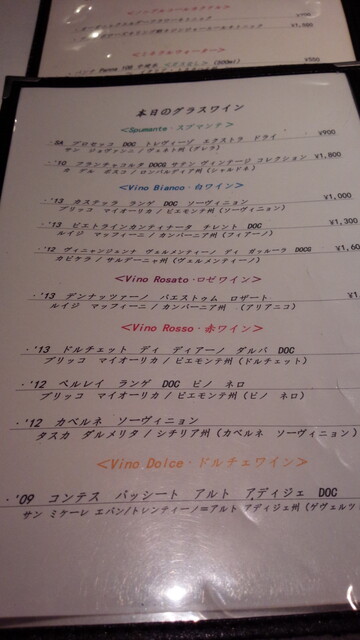 ¥1,500
<ミネラルウォーター>
¥500
本日のグラスワイン
<Spumante・スプマンテ>
・SA プロセッコ DOC トレヴィーゾ エクストラ ドライ ¥900
サン ジョヴァンニ/ヴェネト州(グレラ)
・'10 フランチャコルタ DOCG サテン ヴィンテージ コレクション ¥1,800
カ デル ボスコ/ロンバルディア州(シャルドネ)
<Vino Bianco・白ワイン>
・'13 カステッラ ランゲ DOC ソーヴィニョン ¥1,000
ブリッコ マイオーリカ/ピエモンテ州(ソーヴィニョン)
・'13 ピエトラインカンティナータ チレント DOC ¥1,300
ルイジ マッフィーニ/カンパーニア州(フィアーノ)
・'12 ヴィニャンジェナ ヴェルメンティーノ ディ ガッルーラ DOCG ¥1,60
カピケラ/サルデーニャ州(ヴェルメンティーノ)
<Vino Rosato・ロゼワイン>
・'13 デンナッツァーノ パエストゥム ロザート ¥1,
ルイジ マッフィーニ/カンパーニア州 (アリアニコ)
<Vino Rosso・赤ワイン>
・'13 ドルチェット ディ ディアーノ ダルバ DOC
ブリッコ マイオーリカ/ピエモンテ州(ドルチェット)
・'12 ベルレイ ランゲ DOC ピノ ネロ
ブリッコ マイオーリカ/ピエモンテ州(ピノ ネロ)
・'12 カベルネ ソーヴィニョン
タスカ ダルメリタ/シチリア州(カベルネ ソーヴィニョン)
<Vino Dolce・ドルチェワイン>
・'09 コンテス パッシート アルト アディジェ DOC
サン ミケーレ エパン/トレンティーノ=アルト アディジェ州(ゲヴェルツ